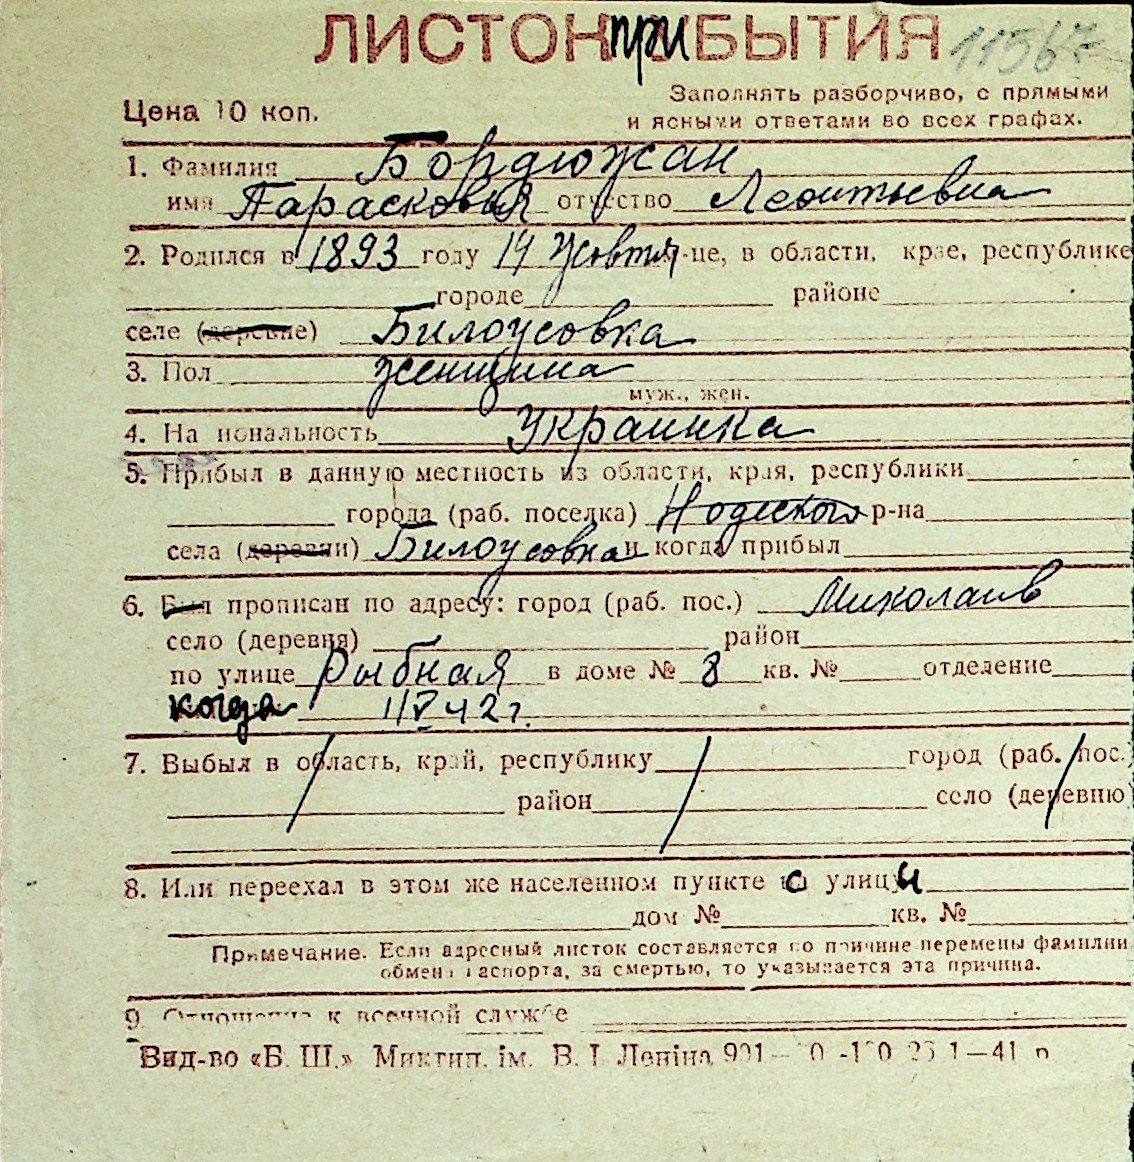 ЛИСТОК при БЫТИЯ 11567
Цена 10 коп.
Заполнять разборчиво, с прямыми
и ясными ответами во всех графах.
1. Фамилия Бордюжан
имя Парасковья отчество Леонтьевна
2. Родился в 1893 году 14 жовтня -це, в области, крае, республике
городе районе
селе (деревне) Билоусовка
3. Пол женщина
муж., жен.
4. Национальность Украинка
5. Прибыл в данную местность из области, края, республики
города (раб. поселка) р-на
села (деревни) Билоусовка и когда прибыл
6. Был прописан по адресу: город (раб. пос.) Миколаив
село (деревня) район
по улице Рыбная в доме № 8 кв. № отделение
когда 11 V 42 г.
7. Выбыл в область, край, республику город (раб. пос.)
район село (деревню)
8. Или переехал в этом же населенном пункте с улицы
дом № кв. №
Примечание. Если адресный листок составляется по причине перемены фамилии
обмена паспорта, за смертью, то указывается эта причина.
9. Отношение к военной службе
Вид-во «Б. Ш.» Миктип. ім. В. І. Леніна